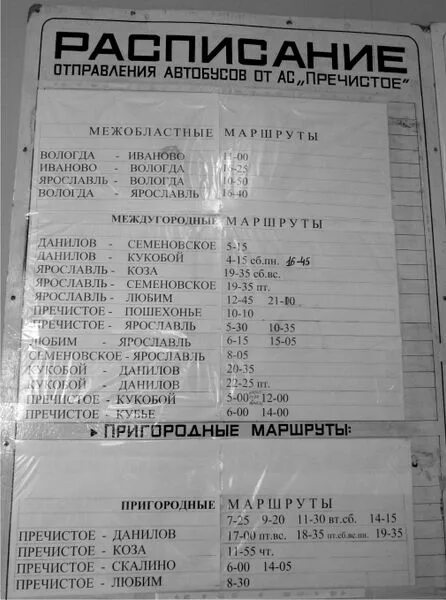 РАСПИСАНИЕ
ОТПРАВЛЕНИЯ АВТОБУСОВ ОТ АС „ПРЕЧИСТОЕ"
МЕЖОБЛАСТНЫЕ МАРШРУТЫ
ВОЛОГДА - ИВАНОВО -00
ИВАНОВО - ВОЛОГДА -25
ЯРОСЛАВЛЬ - ВОЛОГДА 10-50
ВОЛОГДА - ЯРОСЛАВЛЬ 16-40
МЕЖДУГОРОДНЫЕ МАРШРУТЫ
ДАНИЛОВ - СЕМЕНОВСКОЕ 5-15
ДАНИЛОВ - КУКОБОЙ 4-15 сб.пн. 16-45
ЯРОСЛАВЛЬ - КОЗА 19-35 сб.вс.
ЯРОСЛАВЛЬ - СЕМЕНОВСКОЕ 19-35 пт.
ЯРОСЛАВЛЬ - ЛЮБИМ 12-45 21-10
ПРЕЧИСТОЕ - ПОШЕХОНЬЕ 10-10
ПРЕЧИСТОЕ - ЯРОСЛАВЛЬ 5-30 10-35
ЛЮБИМ - ЯРОСЛАВЛЬ 6-15 15-05
СЕМЕНОВСКОЕ - ЯРОСЛАВЛЬ 8-05
КУКОБОЙ - ДАНИЛОВ 20-35
КУКОБОЙ - ДАНИЛОВ 22-25 пт.
ПРЕЧИСТОЕ - КУКОБОЙ 5-00 12-00
ПРЕЧИСТОЕ - КУБЬЕ 6-00 14-00
ПРИГОРОДНЫЕ МАРШРУТЫ:
ПРИГОРОДНЫЕ МАРШРУТЫ
7-25 9-20 11-30 вт.сб. 14-15
ПРЕЧИСТОЕ - ДАНИЛОВ 17-00 пт.вс. 18-35 пт.сб.вс.пн. 19-35
ПРЕЧИСТОЕ - КОЗА 11-55 чт.
ПРЕЧИСТОЕ - СКАЛИНО 6-00 14-05
ПРЕЧИСТОЕ - ЛЮБИМ 8-30